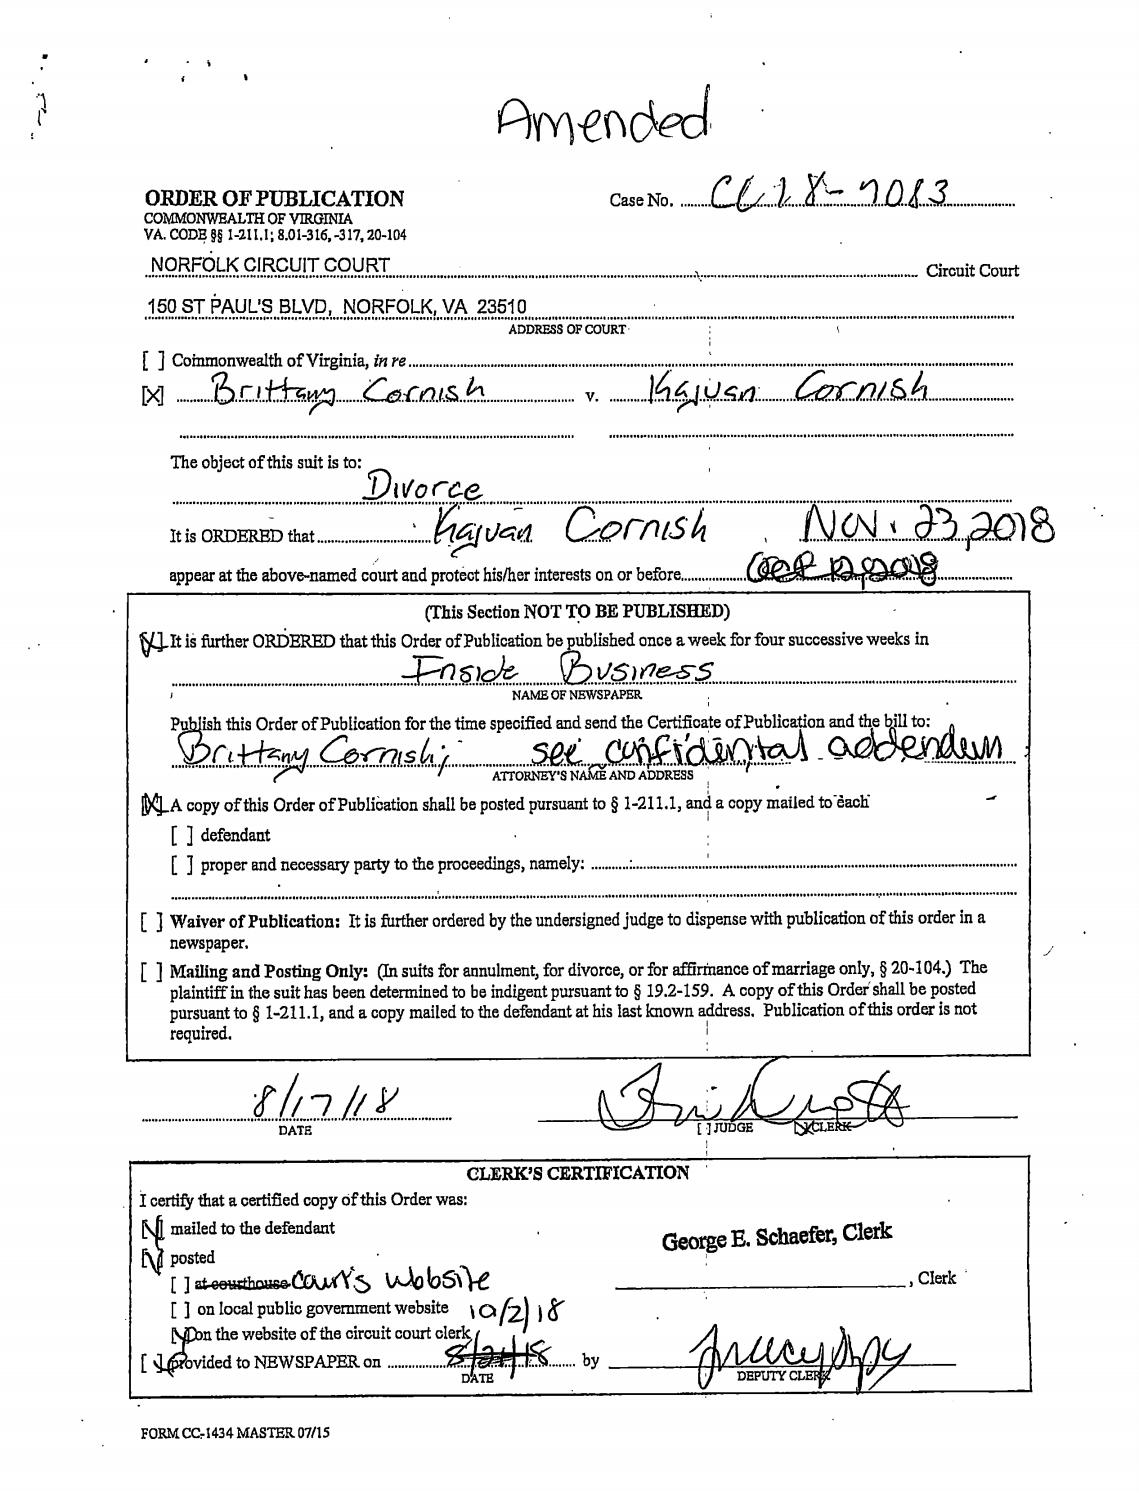 Amended
ORDER OF PUBLICATION
Case No. CL18-7083
COMMONWEALTH OF VIRGINIA
VA. CODE §§ 1-211.1; 8.01-316, -317, 20-104
NORFOLK CIRCUIT COURT Circuit Court
150 ST PAUL'S BLVD, NORFOLK, VA 23510
ADDRESS OF COURT
[ ] Commonwealth of Virginia, in re
[X] Brittany Cornish v. Kajuan Cornish
The object of this suit is to:
Divorce
It is ORDERED that Kajuan Cornish , Nov. 23, 2018
appear at the above-named court and protect his/her interests on or before
(This Section NOT TO BE PUBLISHED)
[X] It is further ORDERED that this Order of Publication be published once a week for four successive weeks in
Inside Business
NAME OF NEWSPAPER
Publish this Order of Publication for the time specified and send the Certificate of Publication and the bill to:
Brittany Cornish; see confidental addendum
ATTORNEY'S NAME AND ADDRESS
[X] A copy of this Order of Publication shall be posted pursuant to § 1-211.1, and a copy mailed to each
[ ] defendant
[ ] proper and necessary party to the proceedings, namely:
[ ] Waiver of Publication: It is further ordered by the undersigned judge to dispense with publication of this order in a
newspaper.
[ ] Mailing and Posting Only: (In suits for annulment, for divorce, or for affirmance of marriage only, § 20-104.) The
plaintiff in the suit has been determined to be indigent pursuant to § 19.2-159. A copy of this Order shall be posted
pursuant to § 1-211.1, and a copy mailed to the defendant at his last known address. Publication of this order is not
required.
8/17/18
DATE
[ ] JUDGE [X] CLERK
CLERK'S CERTIFICATION
I certify that a certified copy of this Order was:
[X] mailed to the defendant
George E. Schaefer, Clerk
[X] posted
[ ] at courthouse Court's website
, Clerk
[ ] on local public government website 10/2/18
[X] on the website of the circuit court clerk
[X] provided to NEWSPAPER on 8/21/18 by
DATE
DEPUTY CLERK
FORM CC-1434 MASTER 07/15